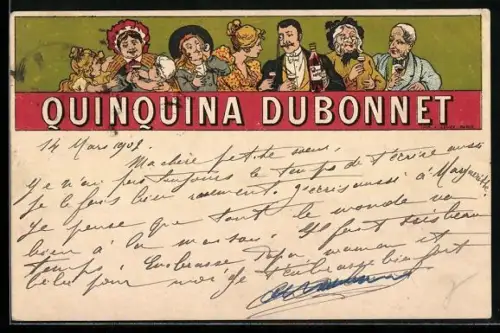 QUINQUINA DUBONNET
14 Mars 1902.
Ma chère petite soeur,
je n'ai pas toujours le temps de t'écrire aussi
je le fais bien rarement. J'écris aussi à Marguerite.
Je pense que tout le monde va
bien à la maison. Il fait très beau
temps. Embrasse Papa, maman et
bébé pour moi. Je t'embrasse bien fort